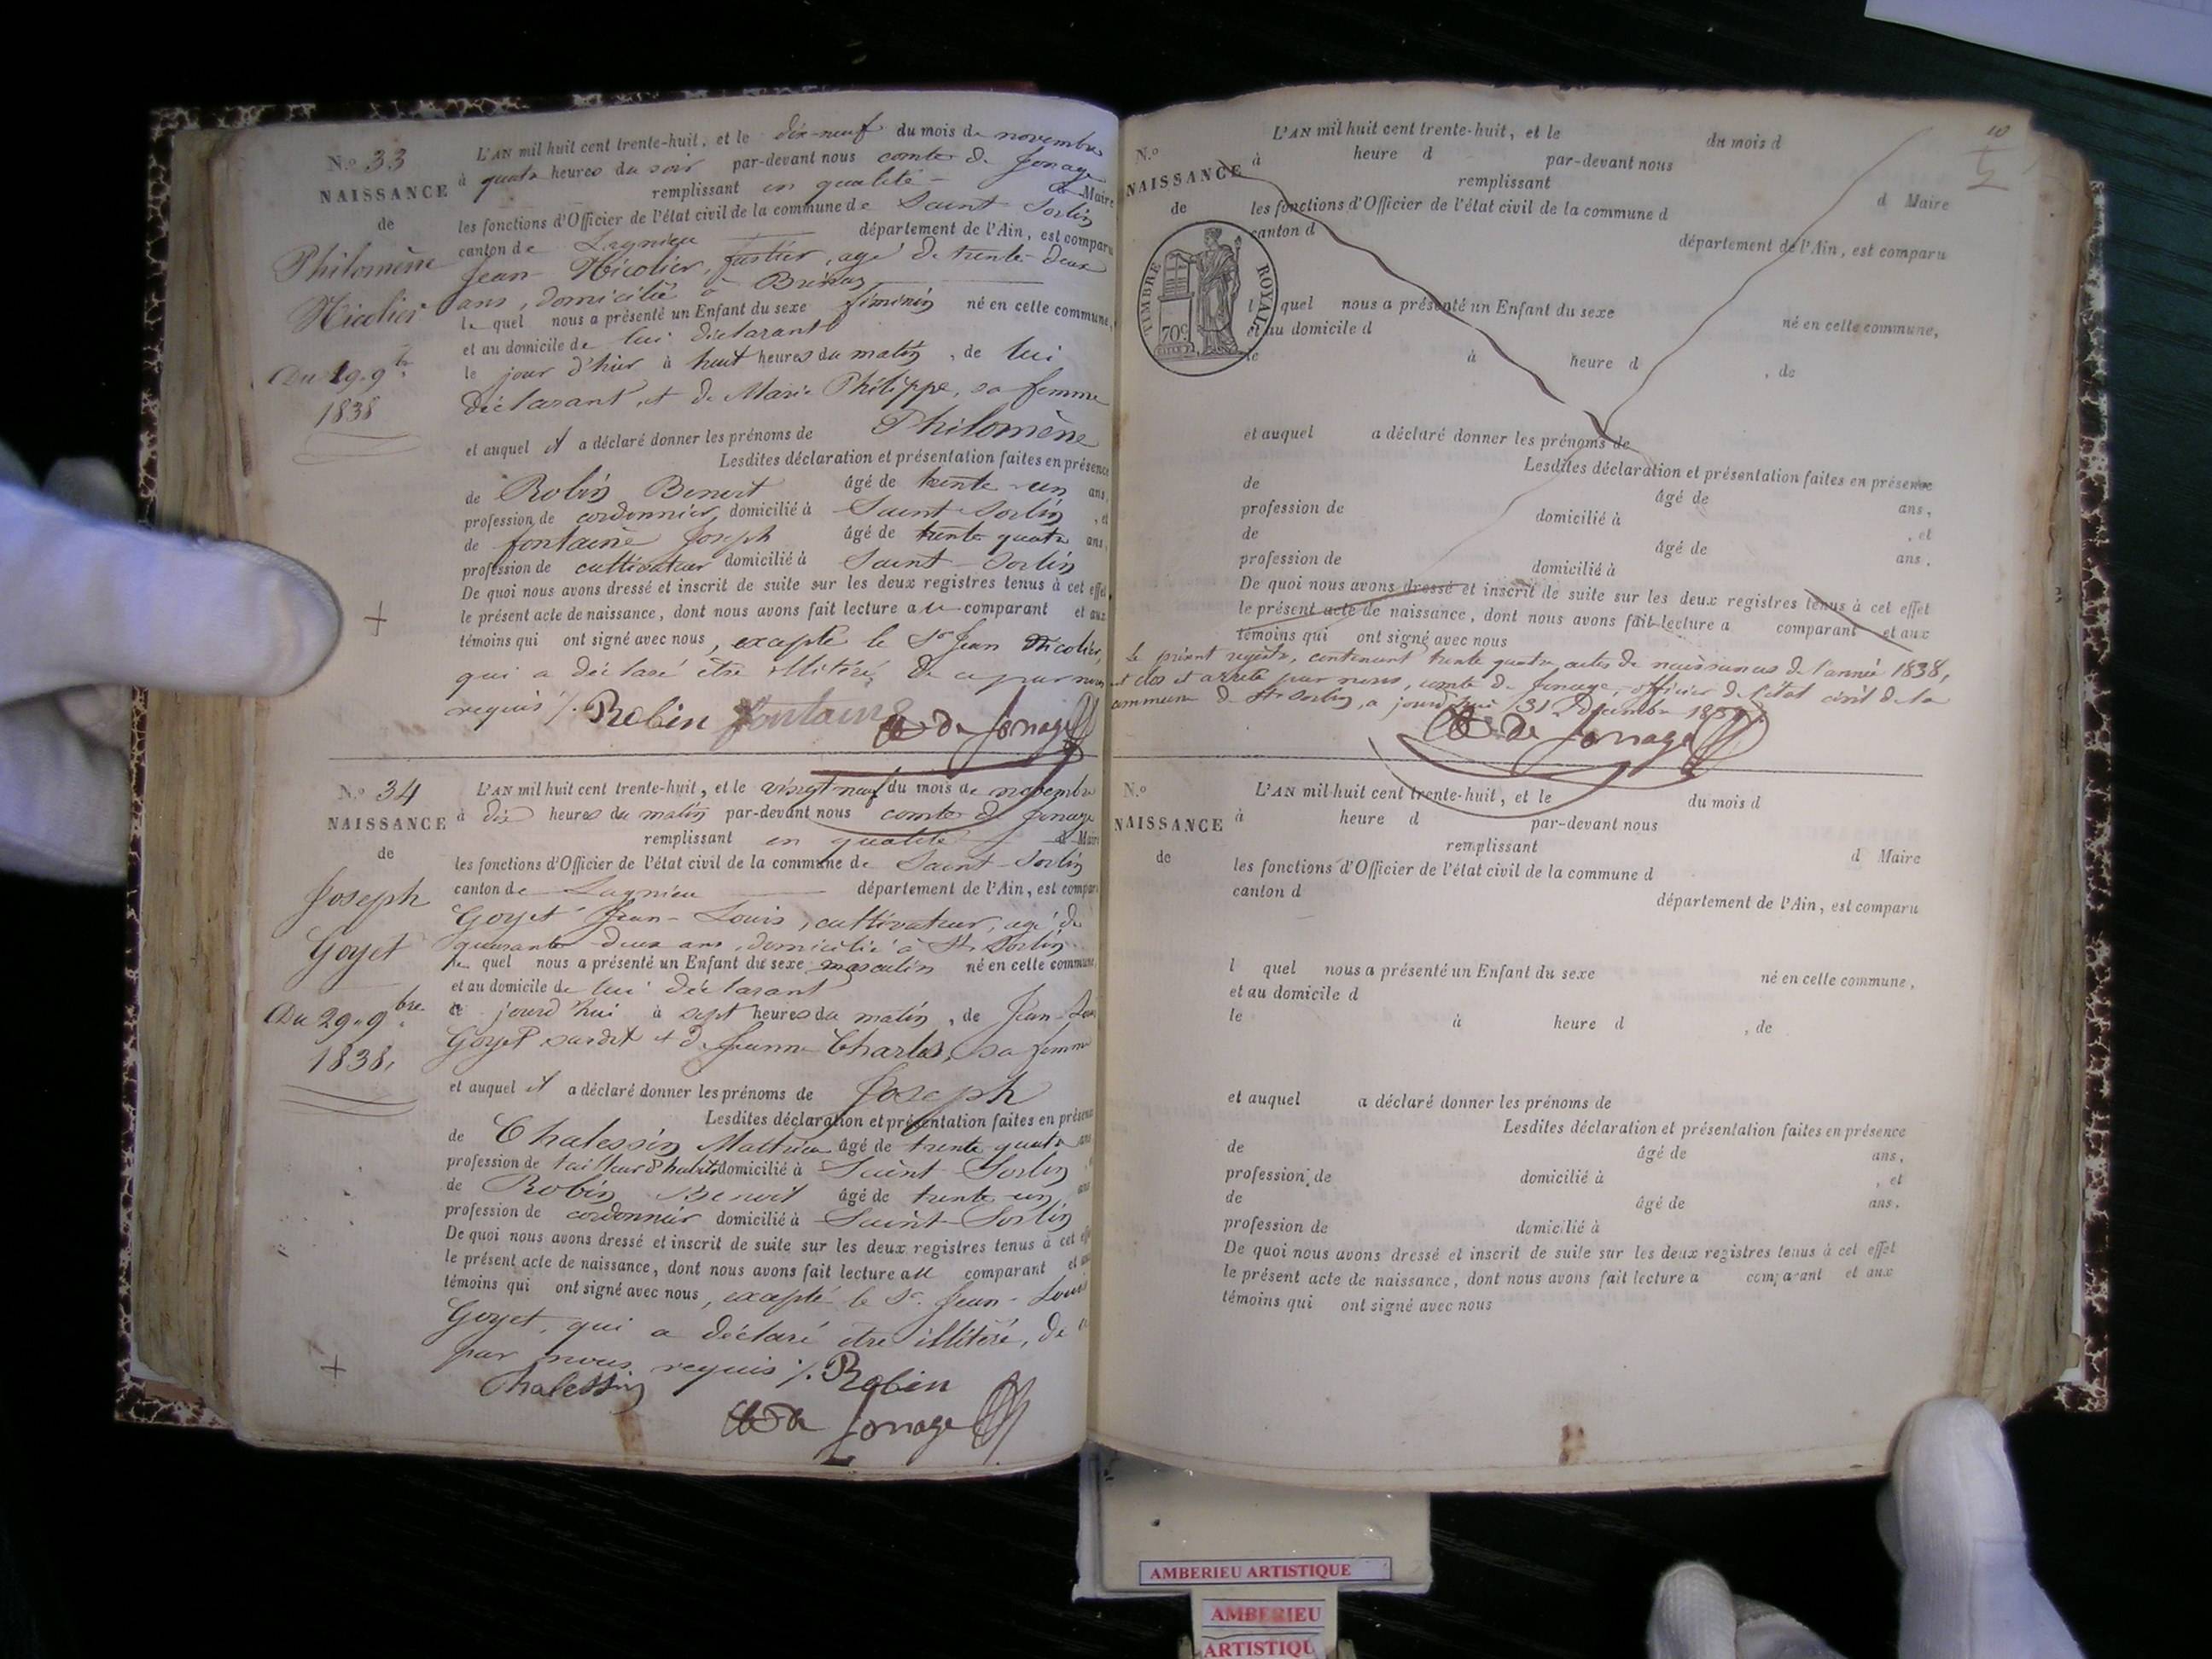 N.º 33
NAISSANCE
de
Philomène
Nicolier
Du 19. 9bre
1838
L'AN mil huit cent trente-huit, et le dix-neuf du mois de novembre
à quatre heures du soir par-devant nous comte de Jonage
remplissant en qualité de Maire
les fonctions d'Officier de l'état civil de la commune de Saint-Sorlin
canton de Lagnieu département de l'Ain, est comparu
Jean Nicolier, âgé de trente-deux
ans, domicilié à
le quel nous a présenté un Enfant du sexe féminin né en celle commune,
et au domicile de lui déclarant
le jour d'hier à huit heures du matin, de lui
déclarant, et de Marie Philippe, sa femme
et auquel il a déclaré donner les prénoms de Philomène
Lesdites déclaration et présentation faites en présence
de Robin Benoit âgé de trente-un ans,
profession de cordonnier, domicilié à Saint-Sorlin, et
de fontaine Joseph âgé de trente quatre ans,
profession de cultivateur domicilié à Saint-Sorlin
De quoi nous avons dressé et inscrit de suite sur les deux registres tenus à cet effet
le présent acte de naissance, dont nous avons fait lecture au comparant et aux
témoins qui ont signé avec nous, excepté le Sr Jean Nicolier,
qui a déclaré être illitéré, de ce par nous
requis ./. Robin fontaine Cte De Jonage
N.º 34
NAISSANCE
de
Joseph
Goyet
Du 29. 9bre
1838.
L'AN mil huit cent trente-huit, et le vingt neuf du mois de novembre
à dix heures du matin par-devant nous comte de Jonage
remplissant en qualité de Maire
les fonctions d'Officier de l'état civil de la commune de Saint-Sorlin
canton de Lagnieu département de l'Ain, est comparu
Goyet Jean-Louis, cultivateur, âgé de
quarante-deux ans, domicilié à St. Sorlin
le quel nous a présenté un Enfant du sexe masculin né en celle commune,
et au domicile de lui déclarant
ce jourd'hui à sept heures du matin, de Jean-Louis
Goyet susdit et de Jeanne Charles, sa femme
et auquel il a déclaré donner les prénoms de Joseph
Lesdites déclaration et présentation faites en présence
de Chalessin Mathieu âgé de trente quatre ans
profession de tailleur d'habits domicilié à Saint-Sorlin
de Robin Benoit âgé de trente-un, ans
profession de cordonnier domicilié à Saint-Sorlin
De quoi nous avons dressé et inscrit de suite sur les deux registres tenus à cet effet
le présent acte de naissance, dont nous avons fait lecture au comparant et aux
témoins qui ont signé avec nous, excepté le Sr. Jean-Louis
Goyet, qui a déclaré être illitéré, de ce
par nous requis ./. Robin
Chalessin
Cte De Jonage
10
N.º
NAISSANCE
de
TIMBRE ROYAL
70 c
L'AN mil huit cent trente-huit, et le du mois d
à heure d par-devant nous
remplissant d Maire
les fonctions d'Officier de l'état civil de la commune d
canton d département de l'Ain, est comparu
l quel nous a présenté un Enfant du sexe né en celle commune,
et au domicile d
le à heure d , de
et auquel a déclaré donner les prénoms de
Lesdites déclaration et présentation faites en présence
de âgé de ans,
profession de domicilié à , et
de âgé de ans,
profession de domicilié à
De quoi nous avons dressé et inscrit de suite sur les deux registres tenus à cet effet
le présent acte de naissance, dont nous avons fait lecture a comparant et aux
témoins qui ont signé avec nous
Le présent registre, contenant trente quatre actes de naissances de l'année 1838,
est clos et arrêté par nous, comte de Jonage, officier de l'état civil de la
commune de St Sorlin, a jourd'hui 31 Décembre 1838.
Cte De Jonage
N.º
NAISSANCE
de
L'AN mil huit cent trente-huit, et le du mois d
à heure d par-devant nous
remplissant d Maire
les fonctions d'Officier de l'état civil de la commune d
canton d département de l'Ain, est comparu
l quel nous a présenté un Enfant du sexe né en celle commune,
et au domicile d
le à heure d , de
et auquel a déclaré donner les prénoms de
Lesdites déclaration et présentation faites en présence
de âgé de ans,
profession de domicilié à , et
de âgé de ans,
profession de domicilié à
De quoi nous avons dressé et inscrit de suite sur les deux registres tenus à cet effet
le présent acte de naissance, dont nous avons fait lecture a comparant et aux
témoins qui ont signé avec nous
AMBERIEU ARTISTIQUE
AMBERIEU
ARTISTIQU